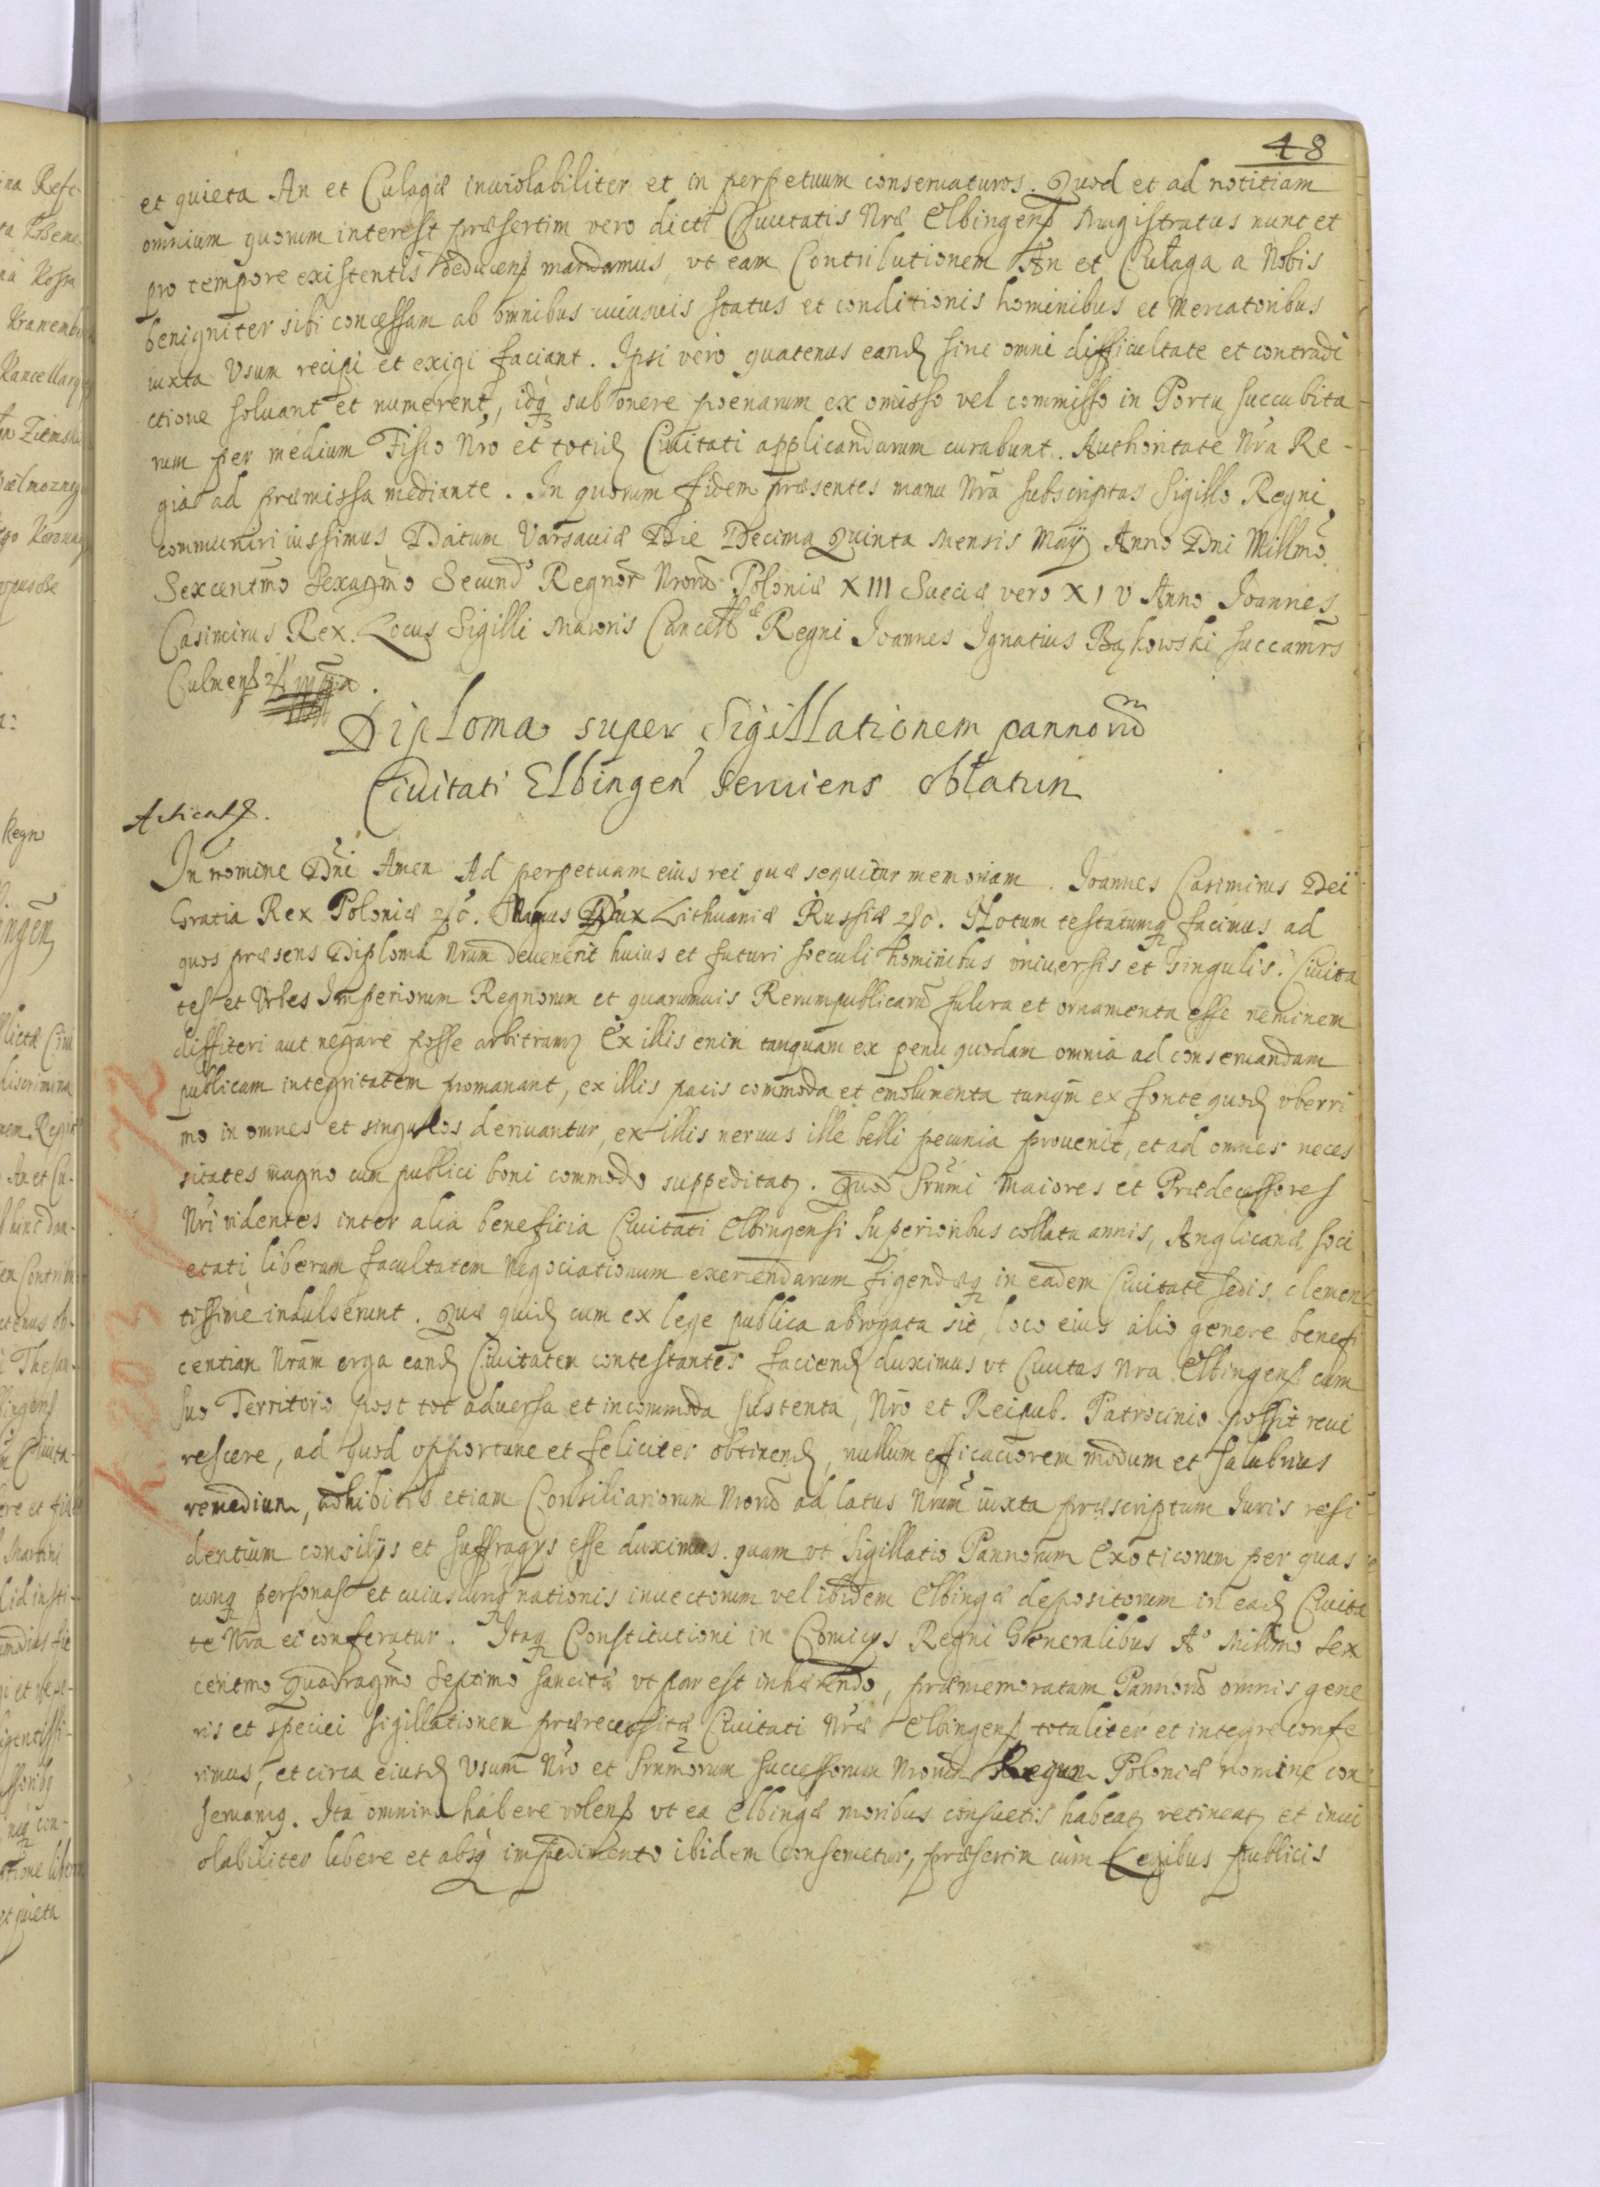 48
et quieta An et Culagæ inuiolabiliter et in perpetuum conseruaturos. Quod et ad notitiam
omnium quorum interest præsertim vero dicti Ciuitatis Nræ Elbingens Magistratus nunc et
pro tempore existentis deducens mandamus, vt eam Contributionem An et Culaga a Nobis
benigniter sibi concessam ab omnibus cuiusuis status et conditionis hominibus et Mercatoribus
iuxta Vsum recipi et exigi faciant. Ipsi vero quatenus eand sine omni difficultate et contradi
ctione soluant et numerent, idq sub onere poenarum ex omisso vel commisso in Portu succubita
rum per medium Fisco Nro et totid Ciuitati applicandarum curabunt. Authoritate Nra Re-
gia ad præmissa mediante. In quorum fidem præsentes manu Nra subscriptas Sigillo Regni
communiri iussimus Datum Varsauiæ Die Decima Quinta Mensis Maÿ Anno Dni Millmo
Sexcentmo Sexagmo Secundo Regnor Nrorū Poloniæ XIII Sueciæ vero XIV Anno Joannes
Casimirus Rex. Locus Sigilli Maioris Cancellæ Regni Joannes Ignatius Bąkowski Succamrs
Culmens mpa.
Diploma super Sigillationem pannorū
Ciuitati Elbingen seruiens oblatum
Acticat.
In nomine Dni Amen Ad perpetuam eius rei quæ sequitur memoriam. Joannes Casimirus Dei
Gratia Rex Poloniæ &c. Magnus Dux Lithuaniæ Russiæ &c. Notum testatumq facimus ad
quos præsens Diploma Nrum deuenerit huius et futuri soeculi hominibus vniuersis et singulis. Ciuita
tes et Vrbes Imperiorum Regnorum et quarumuis Rerumpublicarū fulcra et ornamenta esse neminem
diffiteri aut negare posse arbitramr Ex illis enim tanquam ex penu quodam omnia ad conseruandam
publicam integritatem promanant, ex illis pacis commoda et emolumenta tanqm ex fonte quod vberri
mo in omnes et singulos deriuantur, ex illis neruus ille belli pecunia prouenit, et ad omnes neces
sitates magno cum publici boni commodo suppeditat. Quod Srnmi Maiores et Prædecessores
Nri videntes inter alia beneficia Ciuitati Elbingensi superioribus collata annis, Anglicanæ soci
etati liberam facultatem Negociationum exercendarum figendæq in eadem Ciuitate sedis clemen
tissime indulserunt. Quæ quid cum ex lege publica abrogata sit, loco eius alio genere benefi
centiam Nram erga eand Ciuitatem contestantes faciend duximus vt Ciuitas Nra Elbingens cum
suo Territorio post tot aduersa et incommoda sustenta, Nro et Reipub. Patrocinio possit reui
rescere, ad quod opportune et feliciter obtinend, nullum efficaciorem modum et salubrius
remedium, adhibitis etiam Consiliariorum Nrorū ad latus Nrum iuxta præscriptum Iuris resi
dentium consilÿs et suffragÿs esse duximus quam vt Sigillatio Pannorum Exoticorum per quas
cunq personas et cuiuscunq nationis inuectorum vel ibidem Elbingæ depositorum in ead Ciuita
te Nra ei conferatur. Itaq Constitutioni in Comicÿs Regni Generalibus Ao Millmo sex
centmo Quadragmo Septimo sancitæ vt par est inhærendo, præmemoratam Pannorū omnis gene
ris et speciei sigillationem prærecensitæ Ciuitati Nræ Elbingens totaliter et integre confe
rimus, et circa eiusd Vsum Nro et Srnmorum successorum Nrorū Regum Poloniæ nomine con
seruamq. Ita omnino habere volens vt ea Elbingæ moribus consuetis habeat retineat et inui
olabiliter libere et absq impedimento ibidem conseruetur, præsertim cùm Legibus publicis